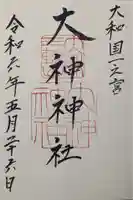 大和国一之宮
大神神社
令和六年五月二十六日